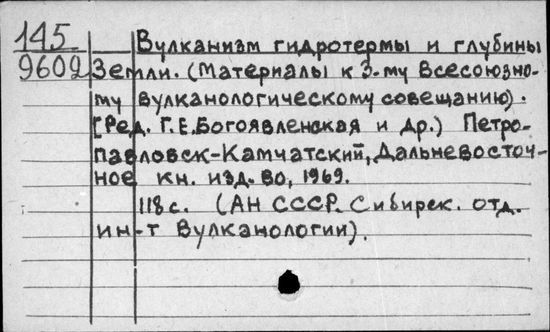 145
9602
Вулканизм гидротермы и глубины
Земли. (Материалы к 3-му Всесоюзно-
му вулканологическому совещанию).
[Ред. Г.Е.Богоявленская и др.) Петро-
павловск-Камчатский, Дальневосточ-
ное кн. изд-во, 1969.
118 с. (АН СССР. Сибирск. отд.
ин-т Вулканологии).